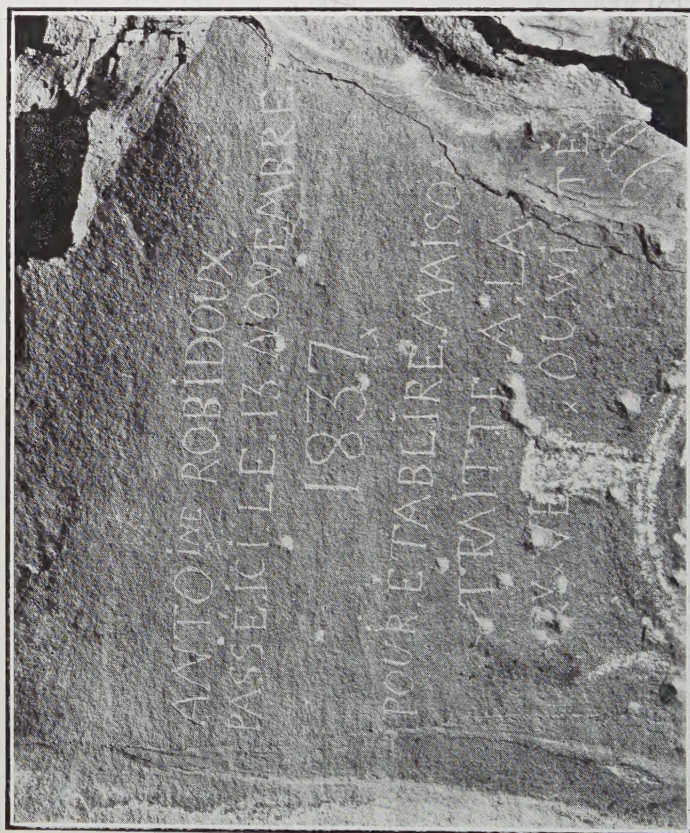 ANTOINE ROBIDOUX
PASSE ICI LE 13 NOVEMBRE
1837
POUR ETABLIRE MAISO
TRAITTE A LA
RV VE x OU WiTÉ